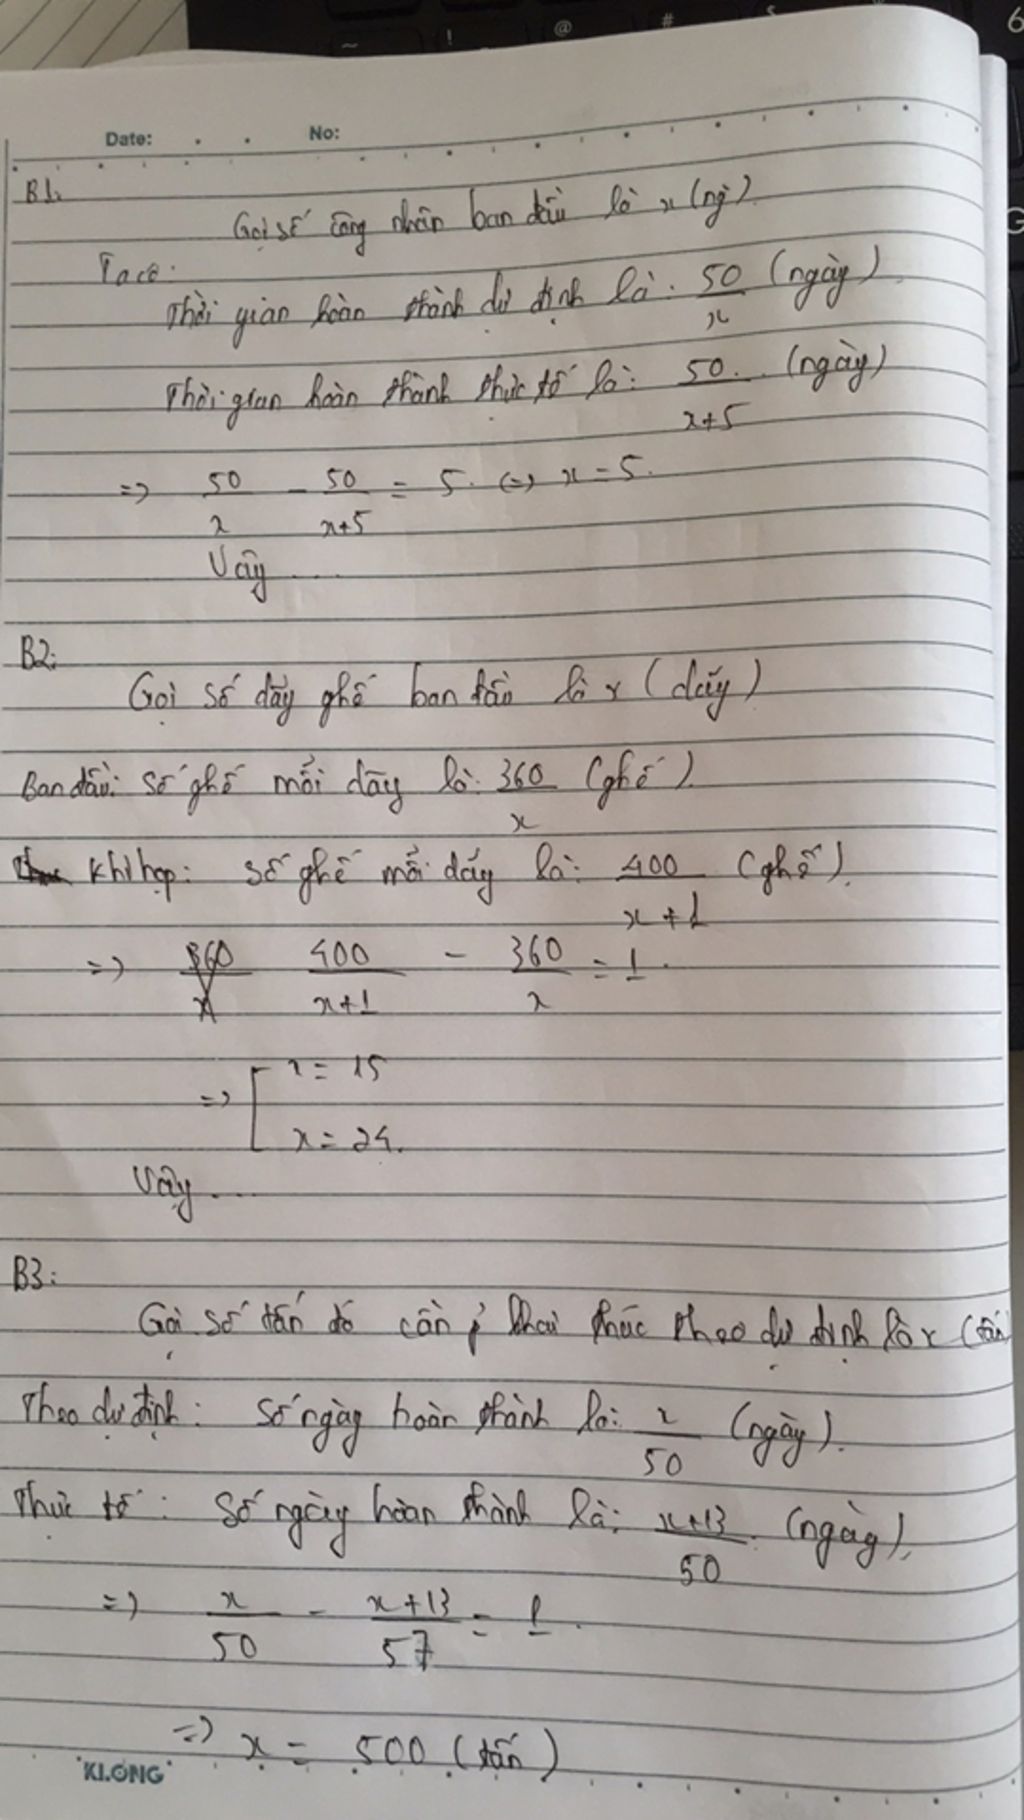 Date: No:
B1:
Gọi số công nhân ban đầu là x (ng)
Ta có:
Thời gian hoàn thành dự định là: 50/x (ngày)
Thời gian hoàn thành thực tế là: 50/x+5 (ngày)
=> 50/x - 50/x+5 = 5 <=> x = 5.
Vậy ....
B2:
Gọi số dãy ghế ban đầu là x (dãy)
Ban đầu: Số ghế mỗi dãy là: 360/x (ghế)
Khi họp: Số ghế mỗi dãy là: 400/x+1 (ghế).
=> 400/x+1 - 360/x = 1.
=> [ x = 15
x = 24.
Vậy ....
B3:
Gọi số tấn đó cần khai thác theo dự định là x (tấn
Theo dự định: Số ngày hoàn thành là: x/50 (ngày).
Thực tế: Số ngày hoàn thành là: x+13/50 (ngày).
=> x/50 - x+13/57 = 1.
=> x = 500 (tấn)
KLONG